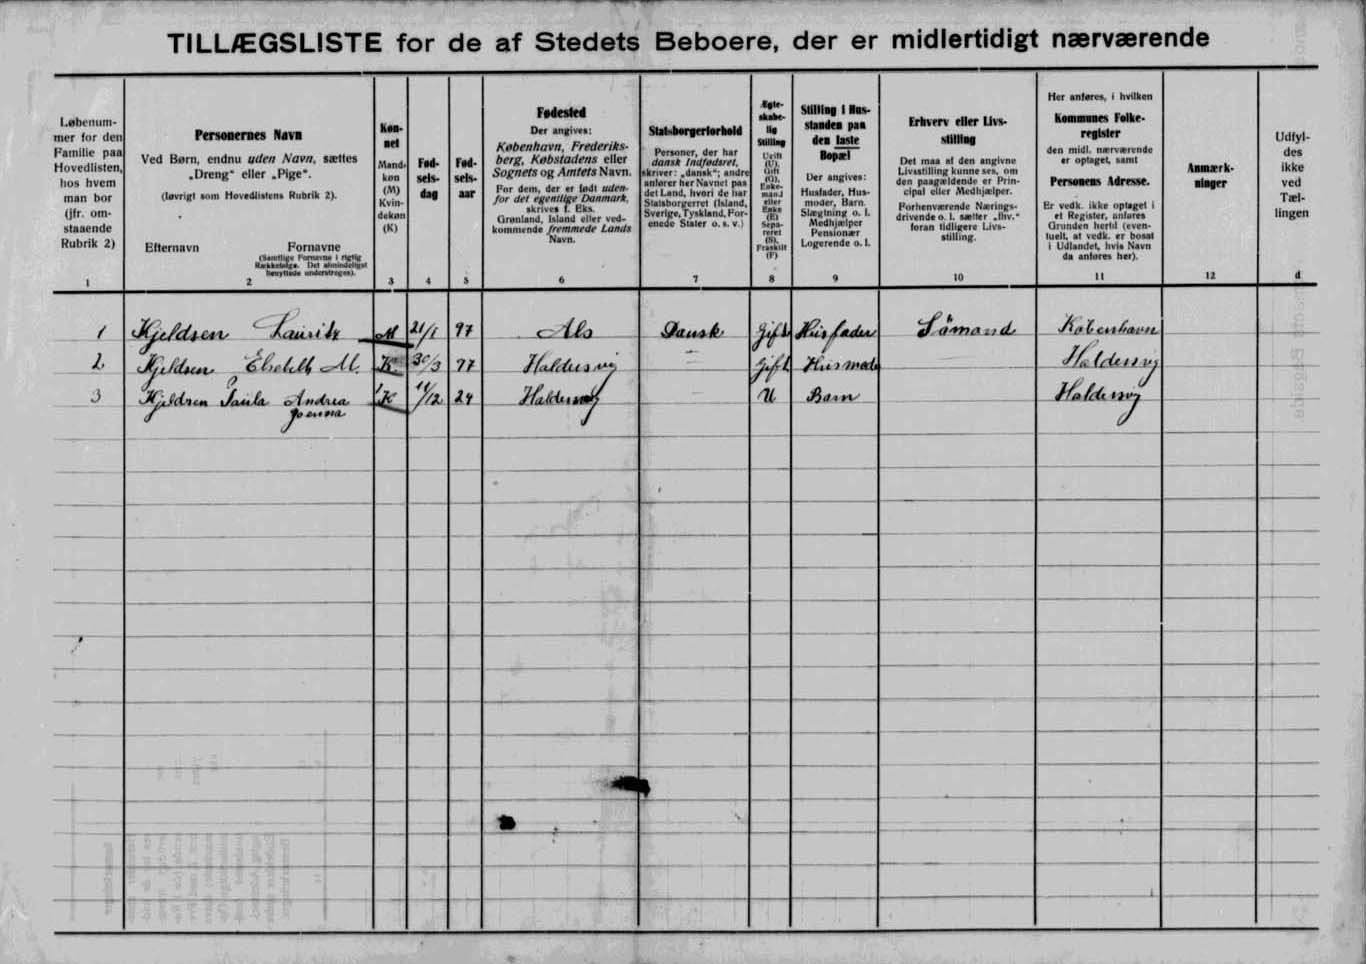 TILLÆGSLISTE for de af Stedets Beboere, der er midlertidigt nærværende
Løbenum-
mer for den
Familie paa
Hovedlisten,
hos hvem
man bor
(jfr. om-
staaende
Rubrik 2)
1
Personernes Navn
Ved Børn, endnu uden Navn, sættes
„Dreng“ eller „Pige“.
(Iøvrigt som Hovedlistens Rubrik 2).
Efternavn Fornavne
(Samtlige Fornavne i rigtig
Rækkefølge. Det almindeligst
benyttede understreges).
2
Køn-
net
Mand-
køn
(M)
Kvin-
dekøn
(K)
3
Fød-
sels-
dag
4
Fød-
sels-
aar
5
Fødested
Der angives:
København, Frederiks-
berg, Købstadens eller
Sognets og Amtets Navn.
For dem, der er født uden-
for det egentlige Danmark,
skrives f. Eks.
Grønland, Island eller ved-
kommende fremmede Lands
Navn.
6
Statsborgerforhold
Personer, der har
dansk Indfødsret,
skriver: „dansk“; andre
anfører her Navnet paa
det Land, hvori de har
Statsborgerret (Island,
Sverige, Tyskland, For-
enede Stater o. s. v.)
7
Ægte-
skabe-
lig
Stilling
Ugift
(U),
Gift
(G),
Enke-
mand
eller
Enke
(E)
Sepa-
reret
(S),
Fraskilt
(F)
8
Stilling i Hus-
standen paa
den faste
Bopæl
Der angives:
Husfader, Hus-
moder, Barn,
Slægtning o. l.
Medhjælper
Pensionær
Logerende o. l.
9
Erhverv eller Livs-
stilling
Det maa af den angivne
Livsstilling kunne ses, om
den paagældende er Prin-
cipal eller Medhjælper.
Forhenværende Nærings-
drivende o. l. sætter „fhv.“
foran tidligere Livs-
stilling.
10
Her anføres, i hvilken
Kommunes Folke-
register
den midl. nærværende
er optaget, samt
Personens Adresse.
Er vedk. ikke optaget i
et Register, anføres
Grunden hertil (even-
tuelt, at vedk. er bosat
i Udlandet, hvis Navn
da anføres her).
11
Anmærk-
ninger
12
Udfyl-
des
ikke
ved
Tæl-
lingen
d
1 Kjeldsen Laurits M 21/1 97 Als Dansk Gift Husfader Sömand København
2 Kjeldsen M. K 30/3 97 Haldersvig — Gift Husmoder — Haldersvig
3 Kjeldsen Paula Andrea K /12 24 Haldersvig — U Barn Haldersvig
Joenna